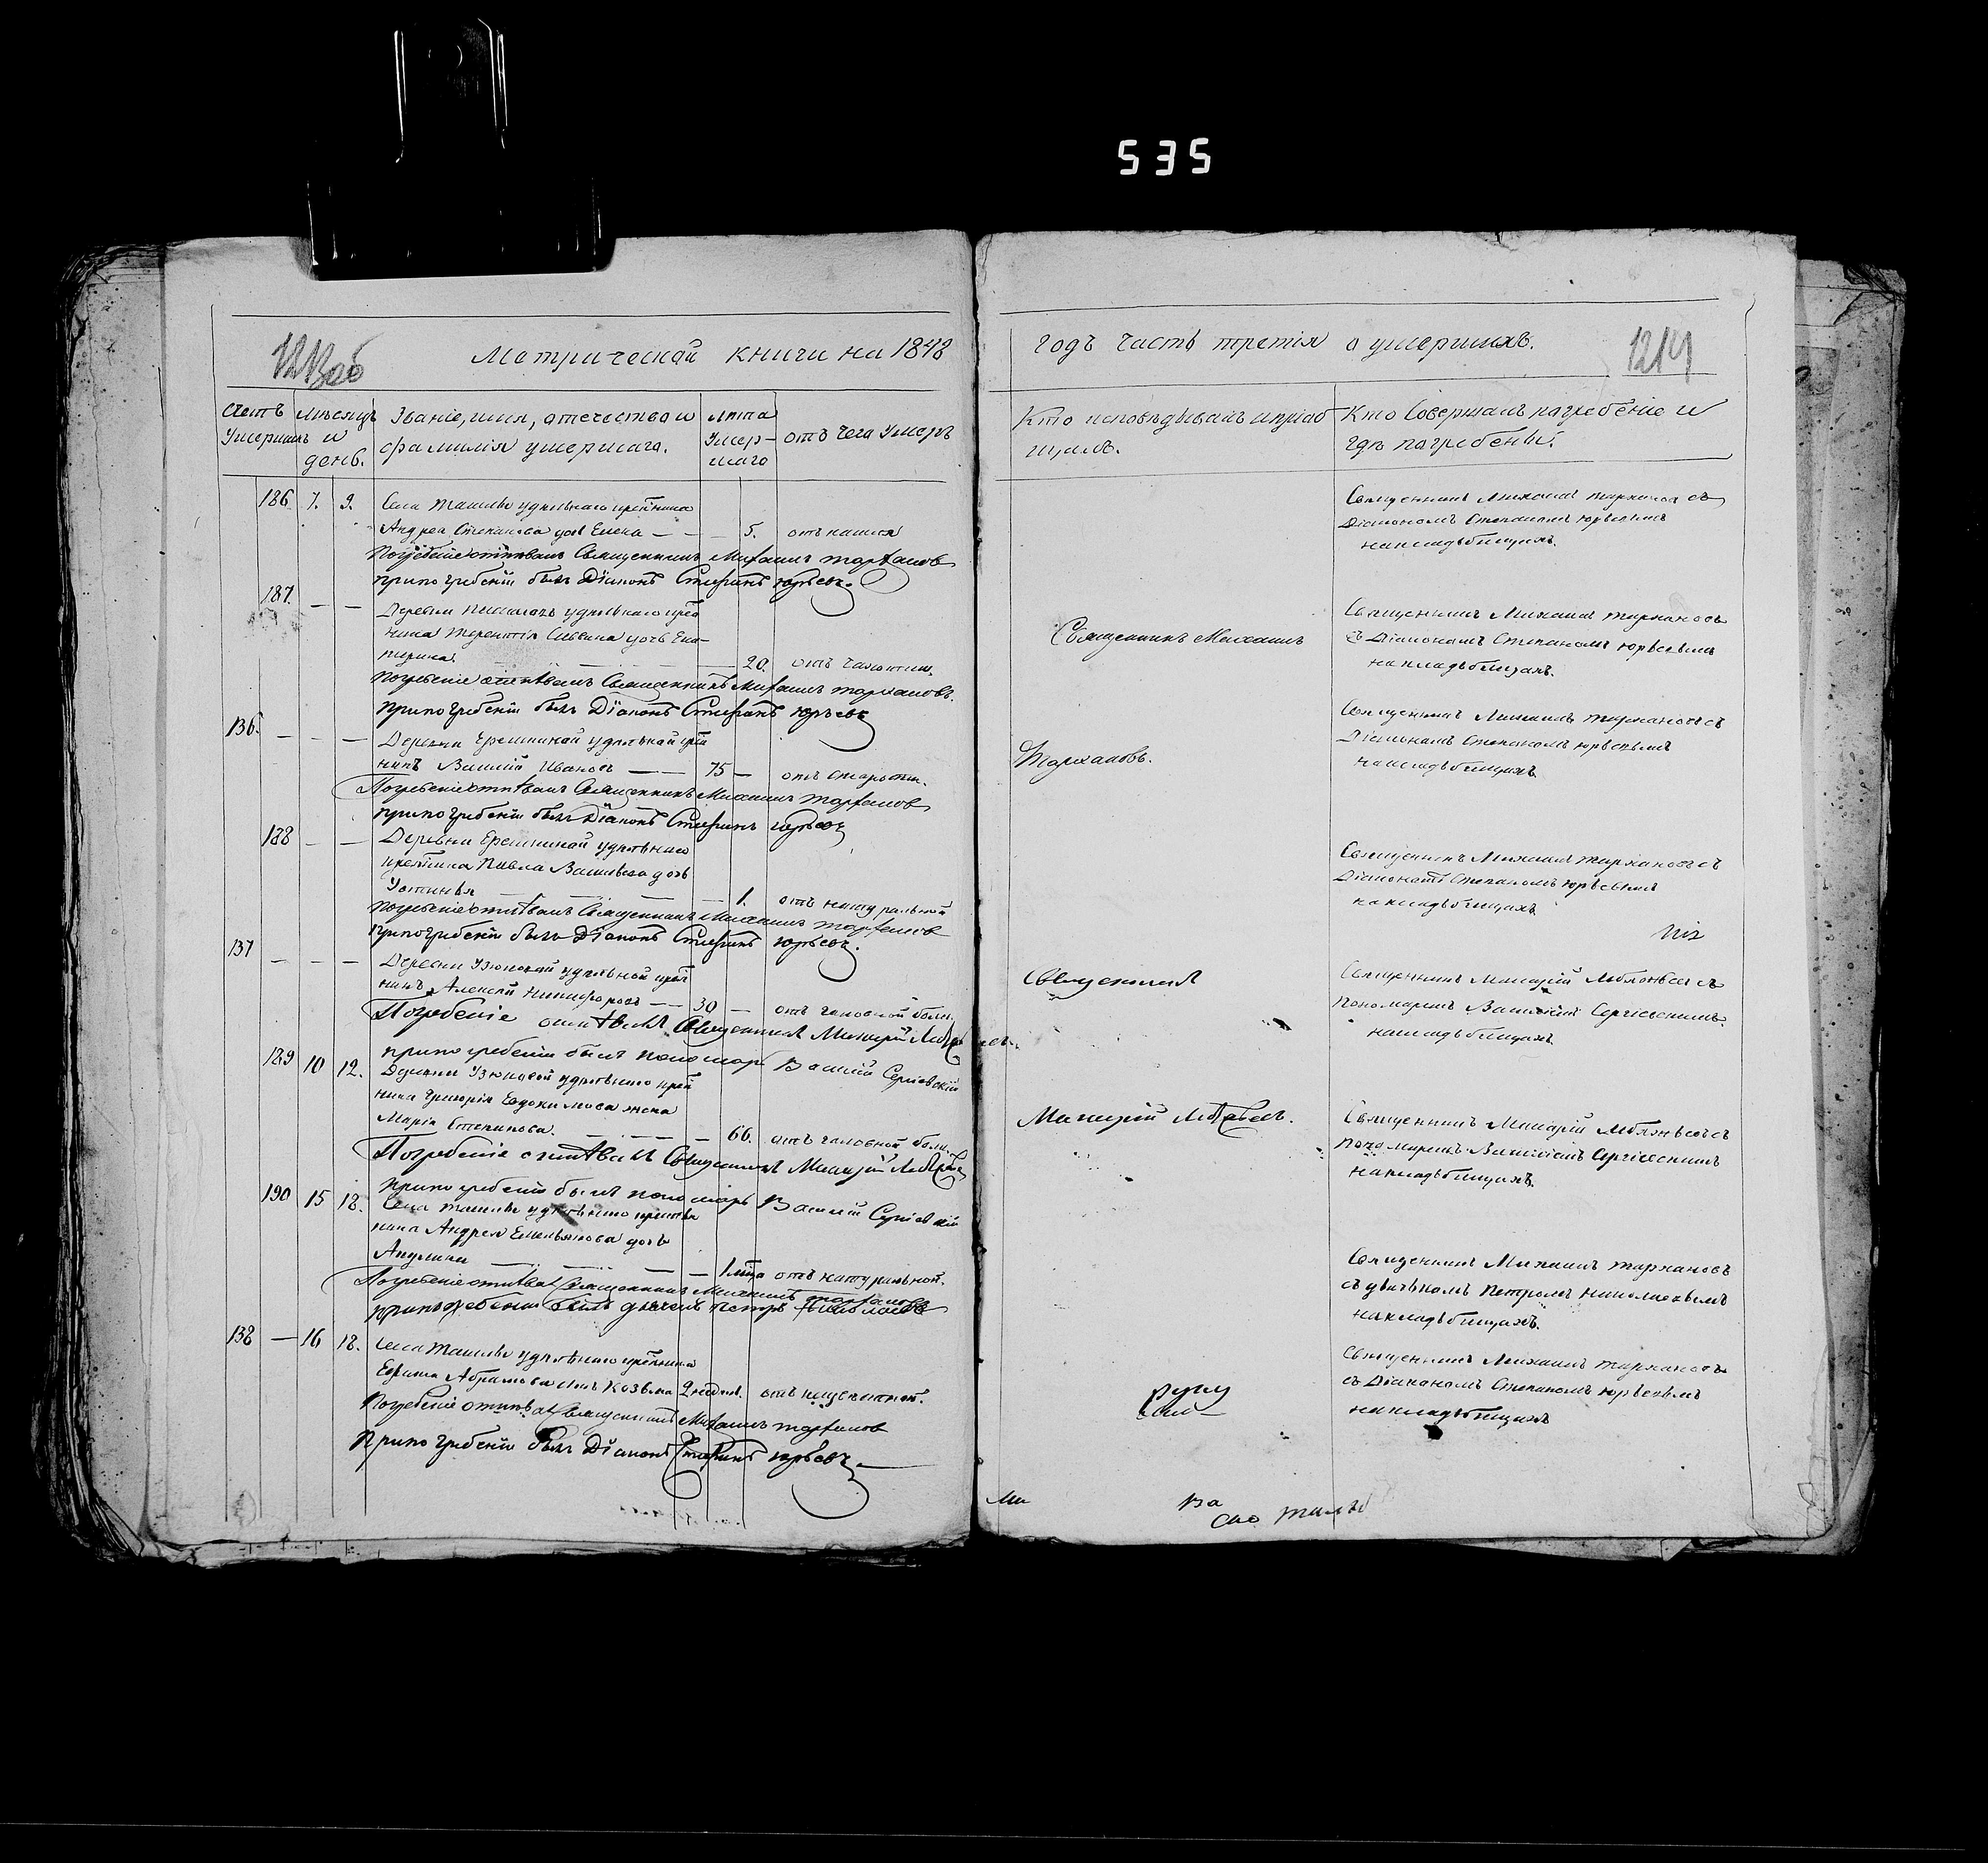 535
1213 об
Метрической книги на 1848
Счетъ Умершихъ
Мѣсяцъ и день.
Званіе, имя, отечество и фамилія умершаго.
Лѣта Умершаго
отъ чего Умеръ
186 7. 9. Села Ташлы удѣльнаго крестьянина
Андрея Степанова дочь Елена — — 5. отъ кашля
Погребеніе отпѣвалъ Священникъ Михаилъ Тархановъ
при погребеніи былъ Діаконъ Стефанъ Юрьевъ.
187. — — Деревни удѣльнаго крестья
нина Терентія Савина дочь Ека-
терина. — — 20. отъ
Погребеніе отпѣвалъ Священникъ Михаилъ Тархановъ.
При погребеніи былъ Діаконъ Стефанъ Юрьевъ
136. — — — Деревни Еремкиной удѣльной крестья
нинъ Василій Ивановъ — — 75 — отъ старости.
Погребеніе отпѣвалъ Священникъ Михаилъ Тархановъ
при погребеніи былъ Діаконъ Стефанъ Юрьевъ
188 — — Деревни Еремкиной удѣльнаго
крестьянина Павла Васильева дочь
Устинья — — — 1. отъ натуральной
Погребеніе отпѣвалъ Священникъ Михаилъ Тархановъ
При погребеніи былъ Діаконъ Стефанъ Юрьевъ.
137 — — — Деревни Узюковой удѣльной крестья
нинъ Алексѣй Никифоровъ — — 30 — отъ головной боли.
Погребеніе отпѣвалъ Священникъ
при погребеніи былъ пономарь Василій Сергіевскій
189 10 12. Деревни Узюковой удѣльнаго крестья
нина Григорія Евдокимова жена
Марія Степанова. — — — 66. отъ головной боли.
Погребеніе отпѣвалъ Священникъ
При погребеніи былъ пономарь Василій Сергіевскій
190 15 18. Села Ташлы удѣльнаго крестья
нина Андрея Емельянова дочь
Акулина — — — 1 мѣца отъ натуральной.
Погребеніе отпѣвалъ Священникъ Михаилъ Тархановъ
при погребеніи былъ дьячекъ Петръ Николаевъ
138 — 16 18. Села Ташлы удѣльнаго крестьянина
Ефима Абрамова сынъ Козьма 2 недѣл. отъ
Погребеніе отпѣвалъ Священникъ Михаилъ Тархановъ
При погребеніи былъ Діаконъ Стефанъ Юрьевъ
годъ часть третія о умершихъ.
1214
Кто исповѣдывалъ и пріоб
щалъ.
Кто Совершалъ погребеніе и
гдѣ погребены.
Священникъ Михаилъ Тархановъ съ
Діакономъ Степаномъ Юрьевымъ
на кладбищахъ.
Священникъ Михаилъ
Священникъ Михаилъ Тархановъ
съ Діакономъ Степаномъ Юрьевымъ
на кладбищахъ.
Тархановъ.
Священникъ Михаилъ Тархановъ съ
Діакономъ Степаномъ Юрьевымъ
на кладбищахъ.
Священникъ Михаилъ Тархановъ съ
Діакономъ Степаномъ Юрьевымъ
на кладбищахъ.
Священникъ
Священникъ съ
Пономаремъ Василіемъ Сергіевскимъ.
на кладбищахъ.
Священникъ съ
Пономаремъ Василіемъ Сергіевскимъ
на кладбищахъ.
Священникъ Михаилъ Тархановъ
съ дьячькомъ Петромъ Николаевымъ
на кладбищахъ.
Священникъ Михаилъ Тархановъ
съ Діакономъ Степаномъ Юрьевымъ
на кладбищахъ
руку
Ми